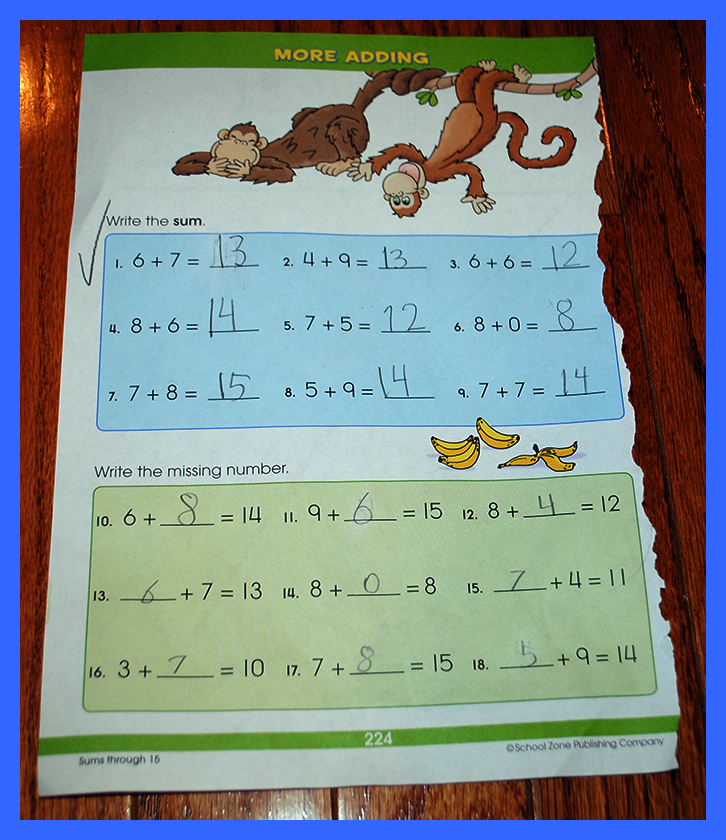 MORE ADDING
Write the sum.
1. 6 + 7 = 13 2. 4 + 9 = 13 3. 6 + 6 = 12
4. 8 + 6 = 14 5. 7 + 5 = 12 6. 8 + 0 = 8
7. 7 + 8 = 15 8. 5 + 9 = 14 9. 7 + 7 = 14
Write the missing number.
10. 6 + 8 = 14 11. 9 + 6 = 15 12. 8 + 4 = 12
13. 6 + 7 = 13 14. 8 + 0 = 8 15. 7 + 4 = 11
16. 3 + 7 = 10 17. 7 + 8 = 15 18. 5 + 9 = 14
224
Sums through 15 ©School Zone Publishing Company